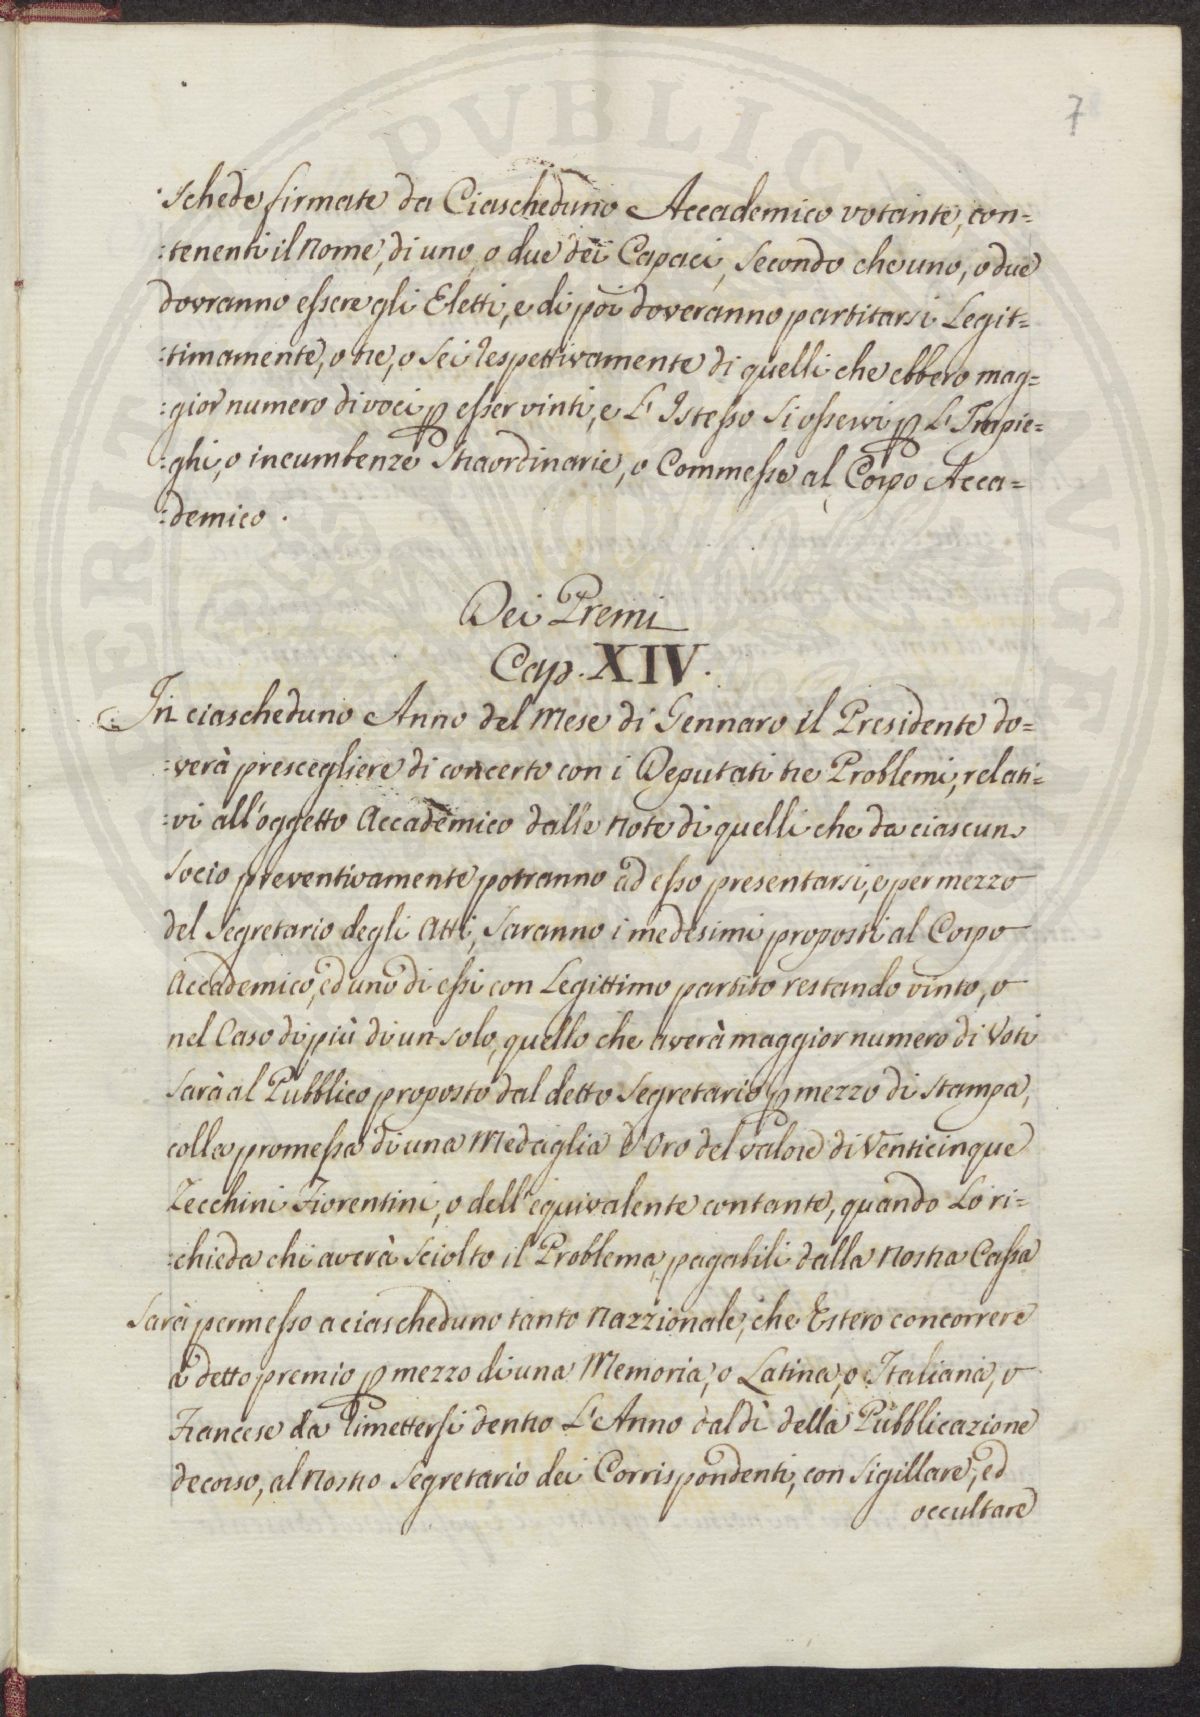 7
Schede firmate da Ciascheduno Accademico votante, con=
=tenenti il Nome, di uno, o due dei Capaci, secondo che uno, o due
dovranno essere gli Eletti, e di poi doveranno partitarsi Legit=
=timamente, o tre, o sei respettivamente di quelli che ebbero mag=
=gior numero di voci p esser vinti, e L'Istesso si osservi p L'Impie=
=ghi, o incumbenze Straordinarie, o Commesse al Corpo Acca=
=demico.
Dei Premi
Cap. XIV.
In ciascheduno Anno del Mese di Gennaro il Presidente do=
=verà prescegliere di concerto con i Deputati tre Problemi, relati=
=vi all'oggetto Accademico dalle Note di quelli che da ciascun
Socio preventivamente potranno ad esso presentarsi, e per mezzo
del Segretario degli Atti, Saranno i medesimi proposti al Corpo
Accademico, ed uno di essi con Legittimo partito restando vinto, o
nel Caso di più di un solo, quello che averà maggior numero di Voti
sarà al Pubblico proposto dal detto Segretario p mezzo di stampa,
colla promessa di una Medaglia d'Oro del valore di Venticinque
Zecchini Fiorentini, o dell'equivalente contante, quando Lo ri=
=chieda chi averà Sciolto il Problema, pagabili dalla Nostra Cassa
Sarà permesso a ciascheduno tanto Nazzionale, che Estero concorrere
a detto premio p mezzo di una Memoria, o Latina, o Italiana, o
Francese da rimettersi dentro L'Anno dal dì della Pubblicazione
decorso, al Nostro Segretario dei Corrispondenti, con sigillare, ed
occultare